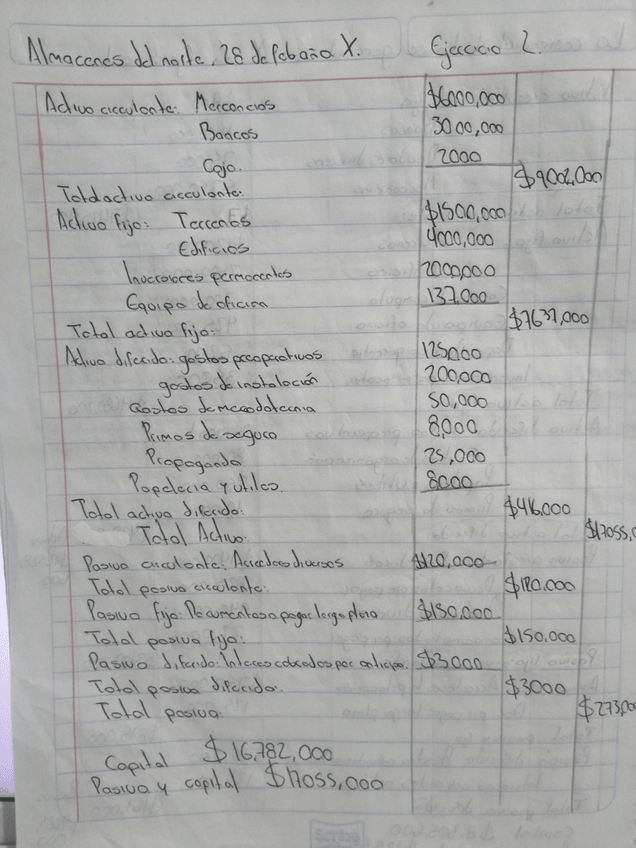 Almacenes del norte, 28 de feb año X. Ejercicio 2.
Activo circulante: Mercancias $6000,000
Bancos 3000,000
Caja. 2000
Total activo circulante: $9002,000
Activo fijo: Terrenos $1500,000
Edificios 4000,000
Inversiones permanentes 2000,000
Equipo de oficina 137.000
Total activo fijo: $7637,000
Activo diferido: gastos preoperativos 125,000
gastos de instalación 200,000
Gastos de mercadotecnia 50,000
Primas de seguro 8,000
Propaganda 25,000
Papelería y utiles. 8000
Total activo diferido: $416,000
Total Activo: $17055,0
Pasivo circulante: Acreedores diversos $120,000
Total pasivo circulante: $120.000
Pasivo fijo: Documentos a pagar largo plazo $150,000
Total pasivo fijo: $150.000
Pasivo diferido: Interes cobrados por anticipo. $3000
Total pasivo diferido. $3000
Total pasivo. $273,00
Capital $16,782,000
Pasivo y capital $17055,000
Scribe